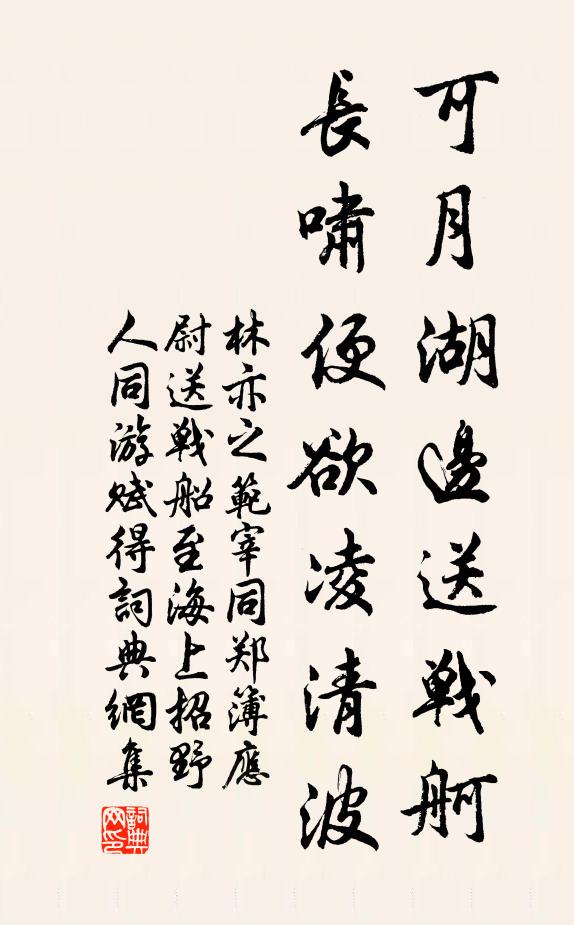 可月湖邊送戦舸
長嘯便欲凌清波
林亦之範宰同郑簿應
尉送戦船至海上招野
人同游赋得詞典網集
詞典
网印